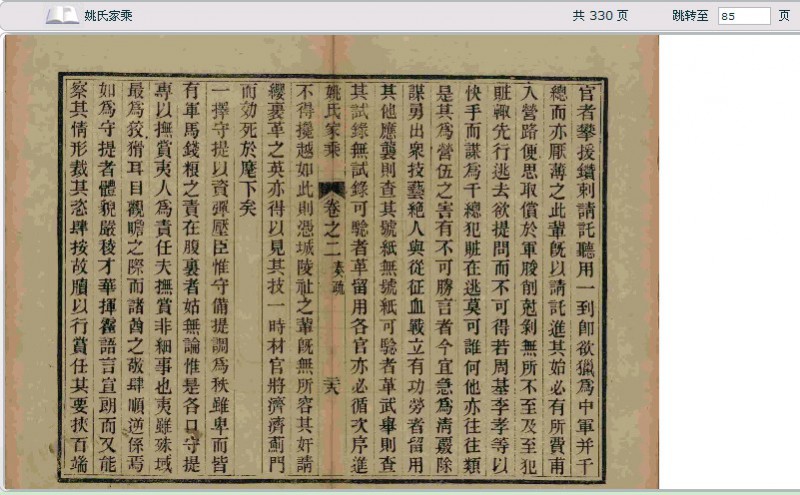 姚氏家乘
共 330 页
跳转至 85 页
官者攀援鑽刺請託聽用一到卽欲獵爲中軍并千
總而亦厭薄之此輩旣以請託進其始必有所費甫
入營路便思取償於軍朘削尅剝無所不至及至犯
賍褫先行逃去欲提問而不可得若周基李孝等以
快手而謀爲千總犯賍在逃莫可誰何他亦往往類
是其爲營伍之害有不可勝言者今宜急爲清覈除
謀勇出衆技藝絶人與從征血戰立有功勞者留用
其他應襲則查其號紙無號紙可驗者革武舉則查
其試錄無試錄可驗者革留用各官亦必循次序進
姚氏家乘
卷之二
奏疏
六
不得攙越如此則憑城陵祉之輩旣無所容其奸請
纓裹革之英亦得以見其技一時材官將濟濟薊門
而効死於麾下矣
一擇守提以資彈壓臣惟守備提調爲秩雖卑而皆
有軍馬錢糧之責在腹裏者姑無論惟是各口守提
專以撫賞夷人爲責任夫撫賞非細事也夷雖殊域
最爲狡猾耳目觀瞻之際而諸酋之敬肆順逆係焉
如爲守提者體貌嚴稜才華揮霍語言宣朗而又能
察其情形裁其恣肆按故牘以行賞任其要挾百端